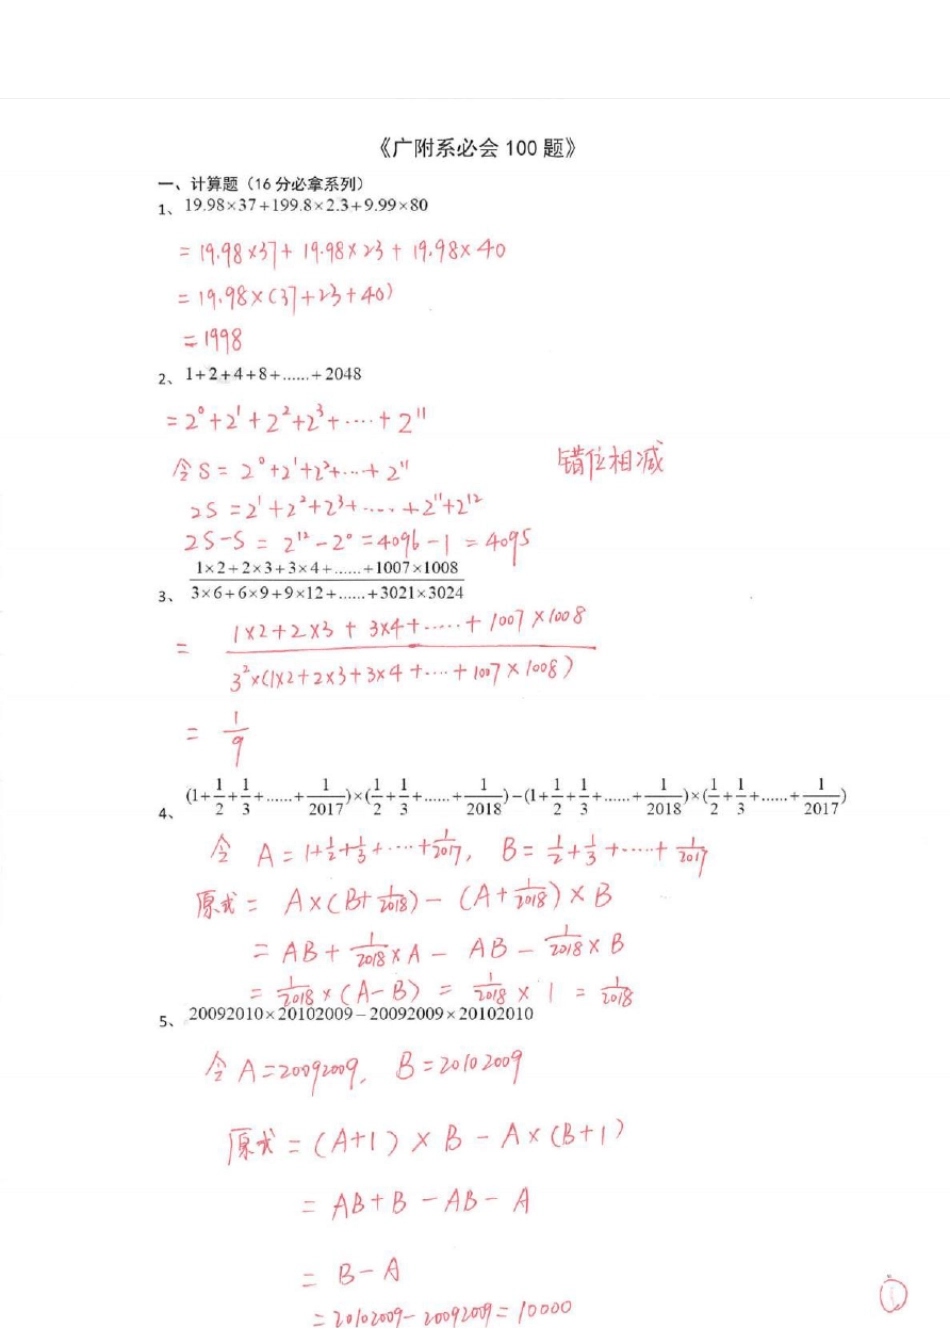 《广附系必会 100 题》
一、计算题（16 分必拿系列）
1、19.98×37+199.8×2.3+9.99×80
= 19.98×37 + 19.98×23 + 19.98×40
= 19.98×(37+23+40)
= 1998
2、1+2+4+8+......+2048
= 2⁰+2¹+2²+2³+····+2¹¹
令 S = 2⁰+2¹+2²+···+2¹¹ 错位相减
2S = 2¹+2²+2³+····+2¹¹+2¹²
2S-S = 2¹²-2⁰ = 4096-1 = 4095
1×2+2×3+3×4+......+1007×1008
3、3×6+6×9+9×12+......+3021×3024
1×2+2×3+3×4+·····+1007×1008
=
3²×(1×2+2×3+3×4+····+1007×1008)
= 1/9
4、(1+1/2+1/3+......+1/2017)×(1/2+1/3+......+1/2018)-(1+1/2+1/3+......+1/2018)×(1/2+1/3+......+1/2017)
令 A = 1+1/2+1/3+····+1/2017, B = 1/2+1/3+·····+1/2017
原式 = A×(B+1/2018) - (A+1/2018)×B
= AB + 1/2018×A - AB - 1/2018×B
= 1/2018×(A-B) = 1/2018×1 = 1/2018
5、20092010×20102009-20092009×20102010
令 A=20092009, B=20102009
原式 = (A+1)×B - A×(B+1)
= AB+B-AB-A
= B-A
= 20102009-20092009 = 10000
①